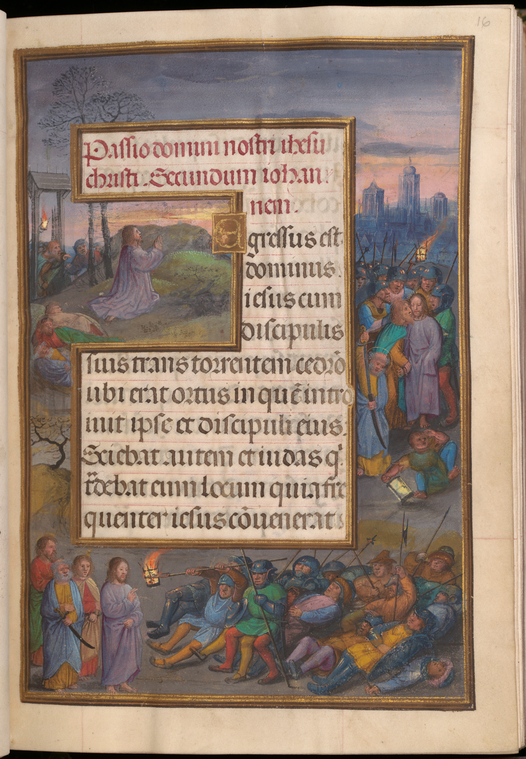 16
Passio domini nostri ihesu
christi. Secundum iohan
nem.
Egressus est
dominus
iesus cum
discipulis
suis trans torrentem cedrō
ubi erat ortus in quē intro
iuit ipse et discipuli eius.
Sciebat autem et iudas q
debat eum locum quia fre
quenter iesus cōuenerat